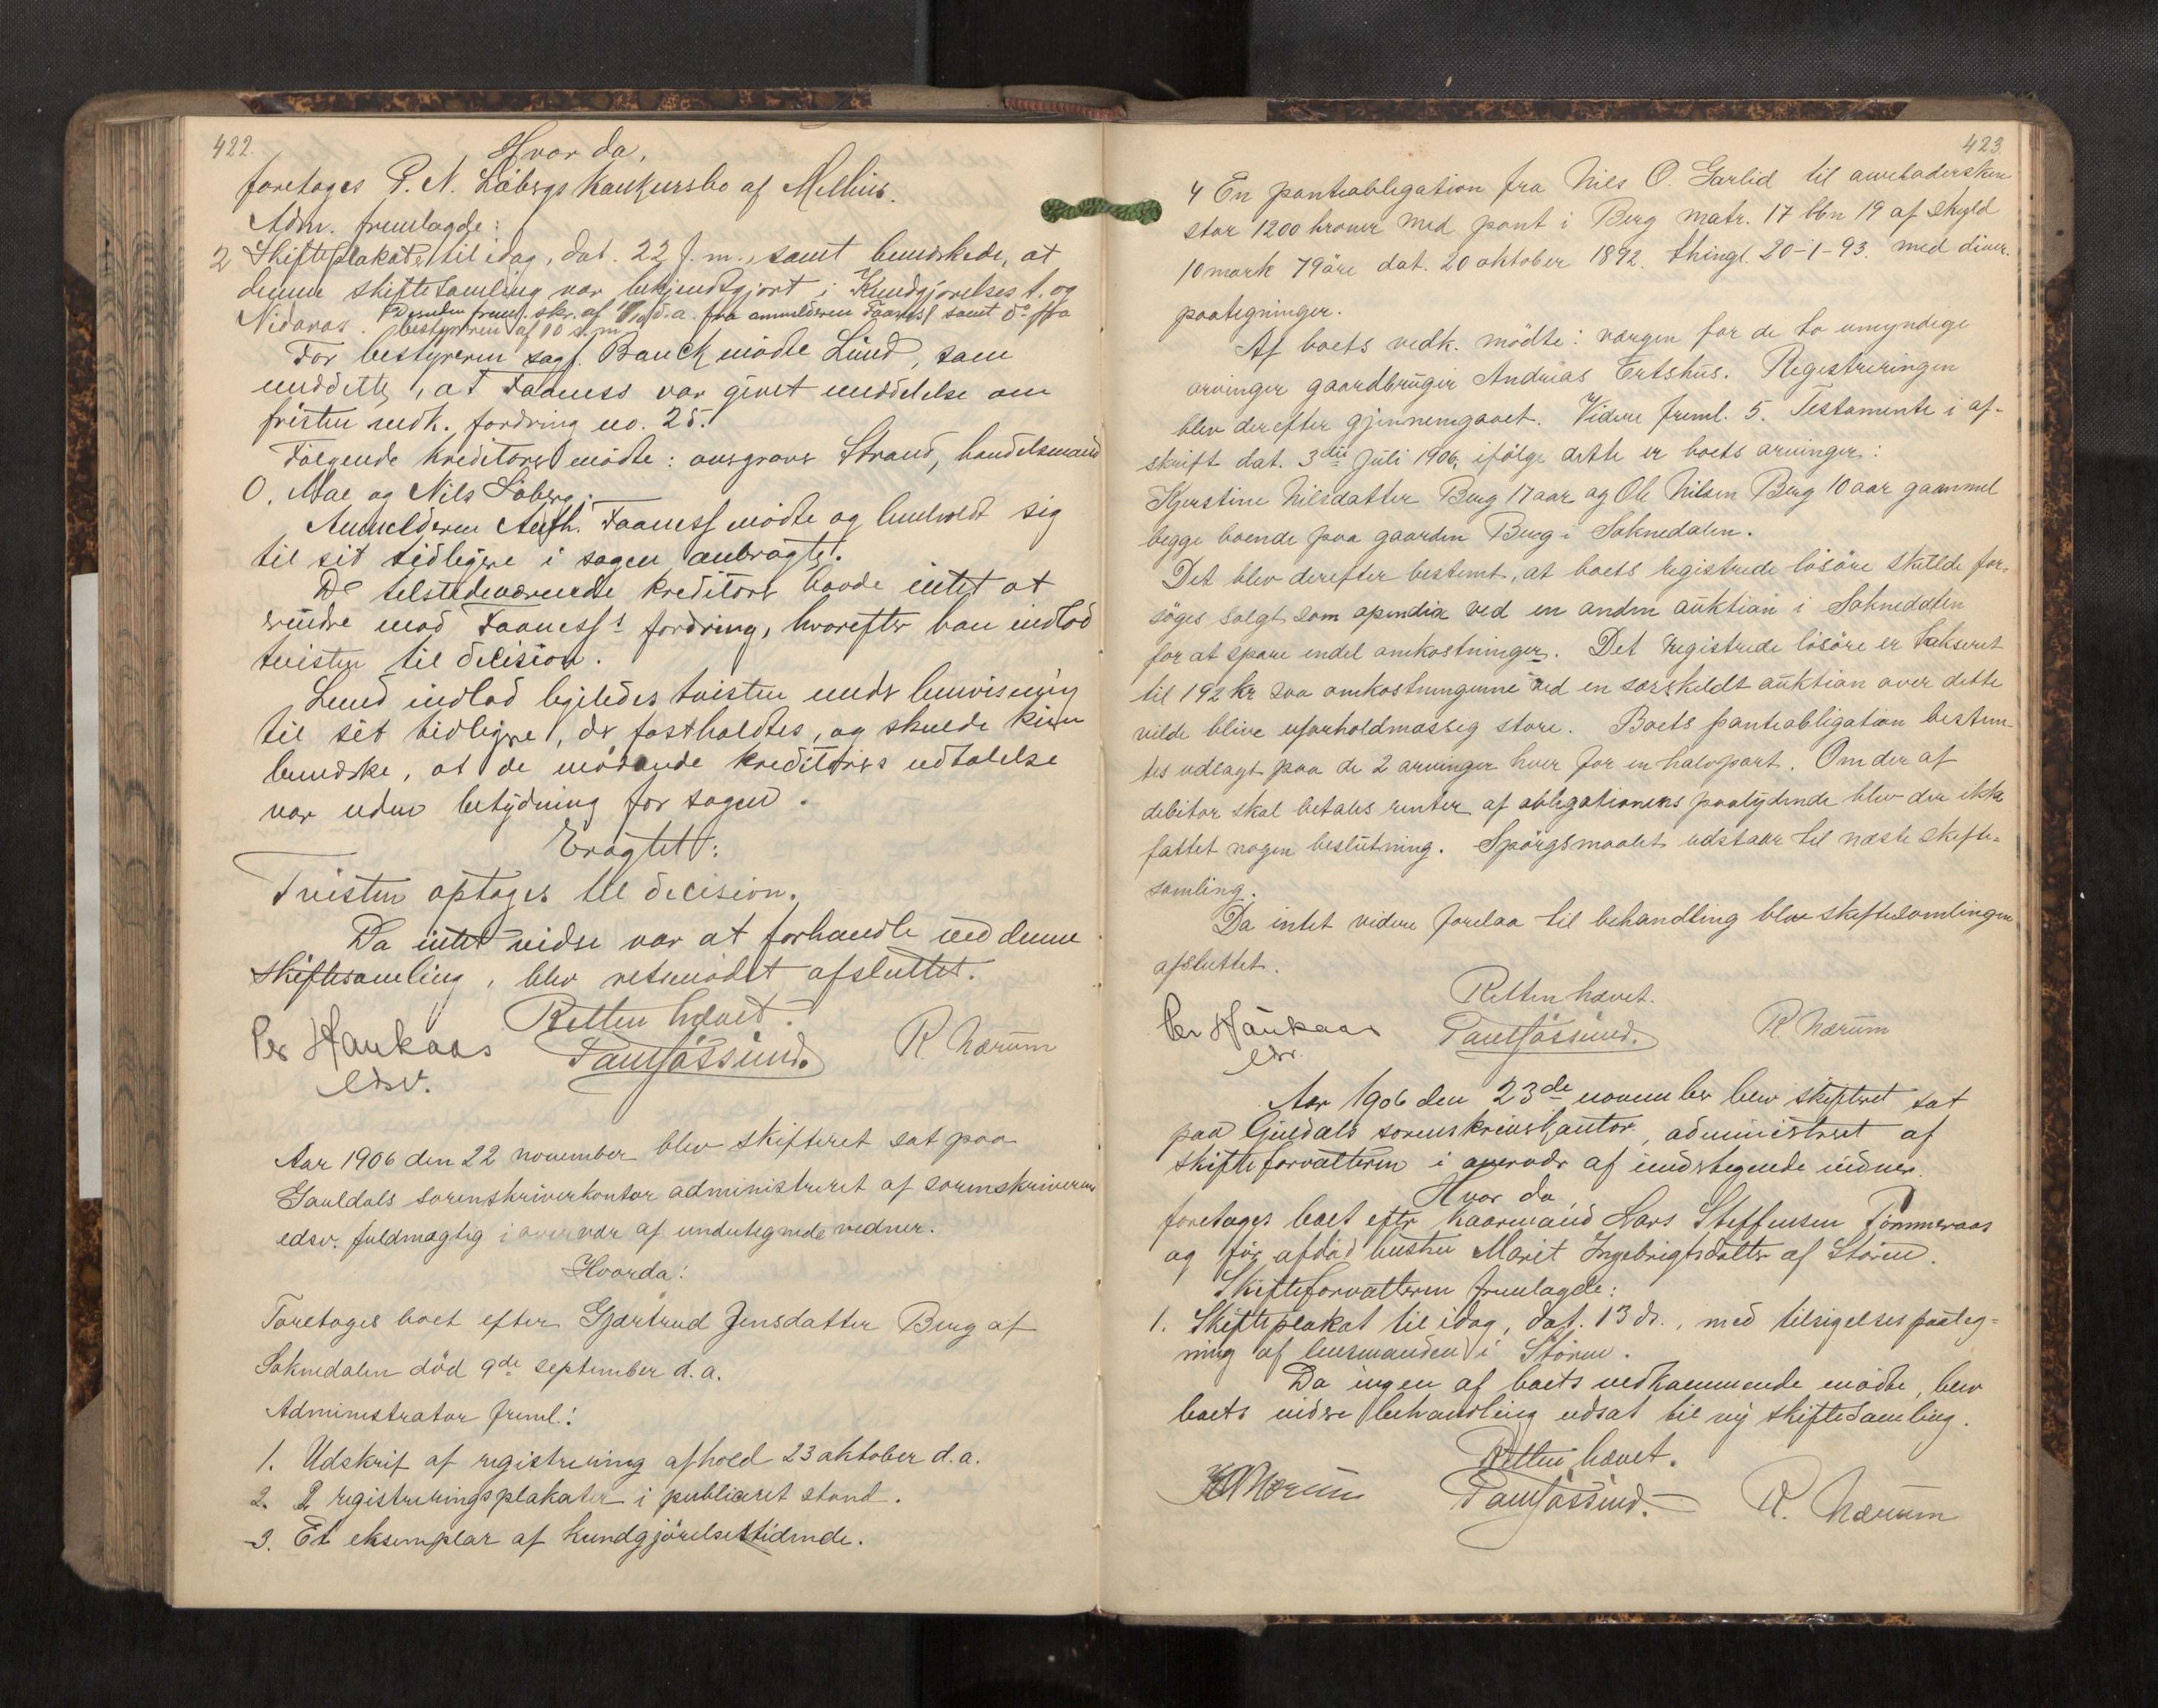 422.
Hvor da,
foretages P. N. Löbergs konkursbo af Melhus.
Adm. fremlagde:
2 Skifteplakat til idag, dat. 22 f. m., samt bemerkede, at
denne skiftesamling var bekjendtgjort i Kundgjørelses t. og
Nidaros. Desuden freml. skr. af d. a. fra anmelderen Faaness samt do fra
bestyreren af 10 d. m.
For bestyreren sagf. Bauck mödte Lund, som
meddelte, at Faaness var givet meddelelse om
fristen vedk. fordring no. 25.
Følgende kreditorer mödte: Strand, handelsmand
O. Moe og Nils Löberg.
Anmelderen Anth. Faaness mödte og henholdt sig
til sit tidligere i sagen anbragte.
De tilstedeværende kreditorer havde intet at
erindre mod Faaness's fordring, hvorefter han indlod
tvisten til decision.
Lund indlod ligeledes tvisten under henvisning
til sit tidligere, der fastholdtes, og skulde kun
bemerke, at de mödende kreditorers udtalelse
var uden betydning for sagen.
Eragtet:
Tvisten optages til decision.
Da intet videre var at forhandle ved denne
skiftesamling, blev retsmödet afsluttet.
Retten hævet.
Per Haukaas Paul Jössund. R. Nærum
edsv.
Aar 1906 den 22 november blev skifteret sat paa
Gauldals sorenskriverkontor administreret af sorenskriverens
edsv. fuldmægtig i overvær af undertegnede vidner.
Hvorda:
Foretages boet efter Gjærtrud Jensdatter Berg af
Soknedalen död 9de september d. a.
Administrator freml.:
1. Udskrif af registrering afhold 23 oktober d. a.
2. 2 registreringsplakater i publiceret stand.
3. Et eksemplar af Kundgjörelsestidende.
423.
4 En panteobligation fra Nils O. Garlid til arveladersken
stor 1200 kroner med pant i Berg matr. 17 bbn 19 af skyld
10 mark 79 öre dat. 20 oktober 1892. thingl. 20-1-93. med diver.
paategninger.
Af boets vedk. mödte: værgen for de to umyndige
arvinger gaardbruger Andreas Ertshus. Registreringen
blev derefter gjennemgaaet. Videre freml. 5. Testamente i af-
skrift dat. 3die Juli 1906, ifölge dette er boets arvinger:
Kjerstine Nilsdatter Berg 17 aar og Ole Nilsen Berg 10 aar gammel
begge boende paa gaarden Berg i Soknedalen.
Det blev derefter bestemt, at boets registrede lösöre skulde for-
söges solgt som apendix ved en anden auktion i Soknedalen
for at spare endel omkostninger. Det registrede lösöre er takseret
til 192 kr saa omkostningerne ved en særskildt auktion over dette
vilde blive uforholdmæssig store. Boets panteobligation bestem-
tes udlagt paa de 2 arvinger hver for en halvpart. Om der af
debitor skal betales renter af obligationens paalydende blev der ikke
fattet nogen beslutning. Spörgsmaalet udstaar til næste skifte-
samling.
Da intet videre forelaa til behandling blev skiftesamlingen
afsluttet.
Retten hævet.
Per Haukaas Paul Jössund. R. Nærum
edsv.
Aar 1906 den 23de november blev skifteret sat
paa Guldals sorenskriverkontor, administreret af
skifteforvalteren i overvær af undertegnede vidner.
Hvor da,
foretages boet efter kaarmand Lars Steffensen Tömmeraas
og för afdöd hustru Marit Ingebrigtsdatter af Stören.
Skifteforvalteren fremlagde:
1. Skifteplakat til idag, dat. 13 ds., med tilsigelsespaateg-
ning af lensmanden i Stören.
Da ingen af boets vedkommende mödte, blev
boets videre behandling udsat til ny skiftesamling.
Retten hævet.
Nærum Paul Jössund. R. Nærum